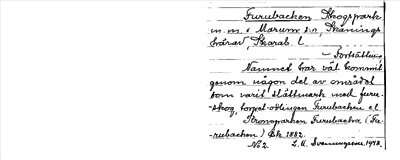 Furubacken, Skogspark
m.m. i Marum sn, Skånings
härad, Skarab. l
– Fortsättning
Namnet har väl kommit
genom någon del av området
som varit slåttmark med furu-
-skog, torpet-odlingen Furubacken el
Kronoparken Furubacka (Fu-
-rubacken) Gk. 1882.
No 2. L. M. Svenungsson. 1943.